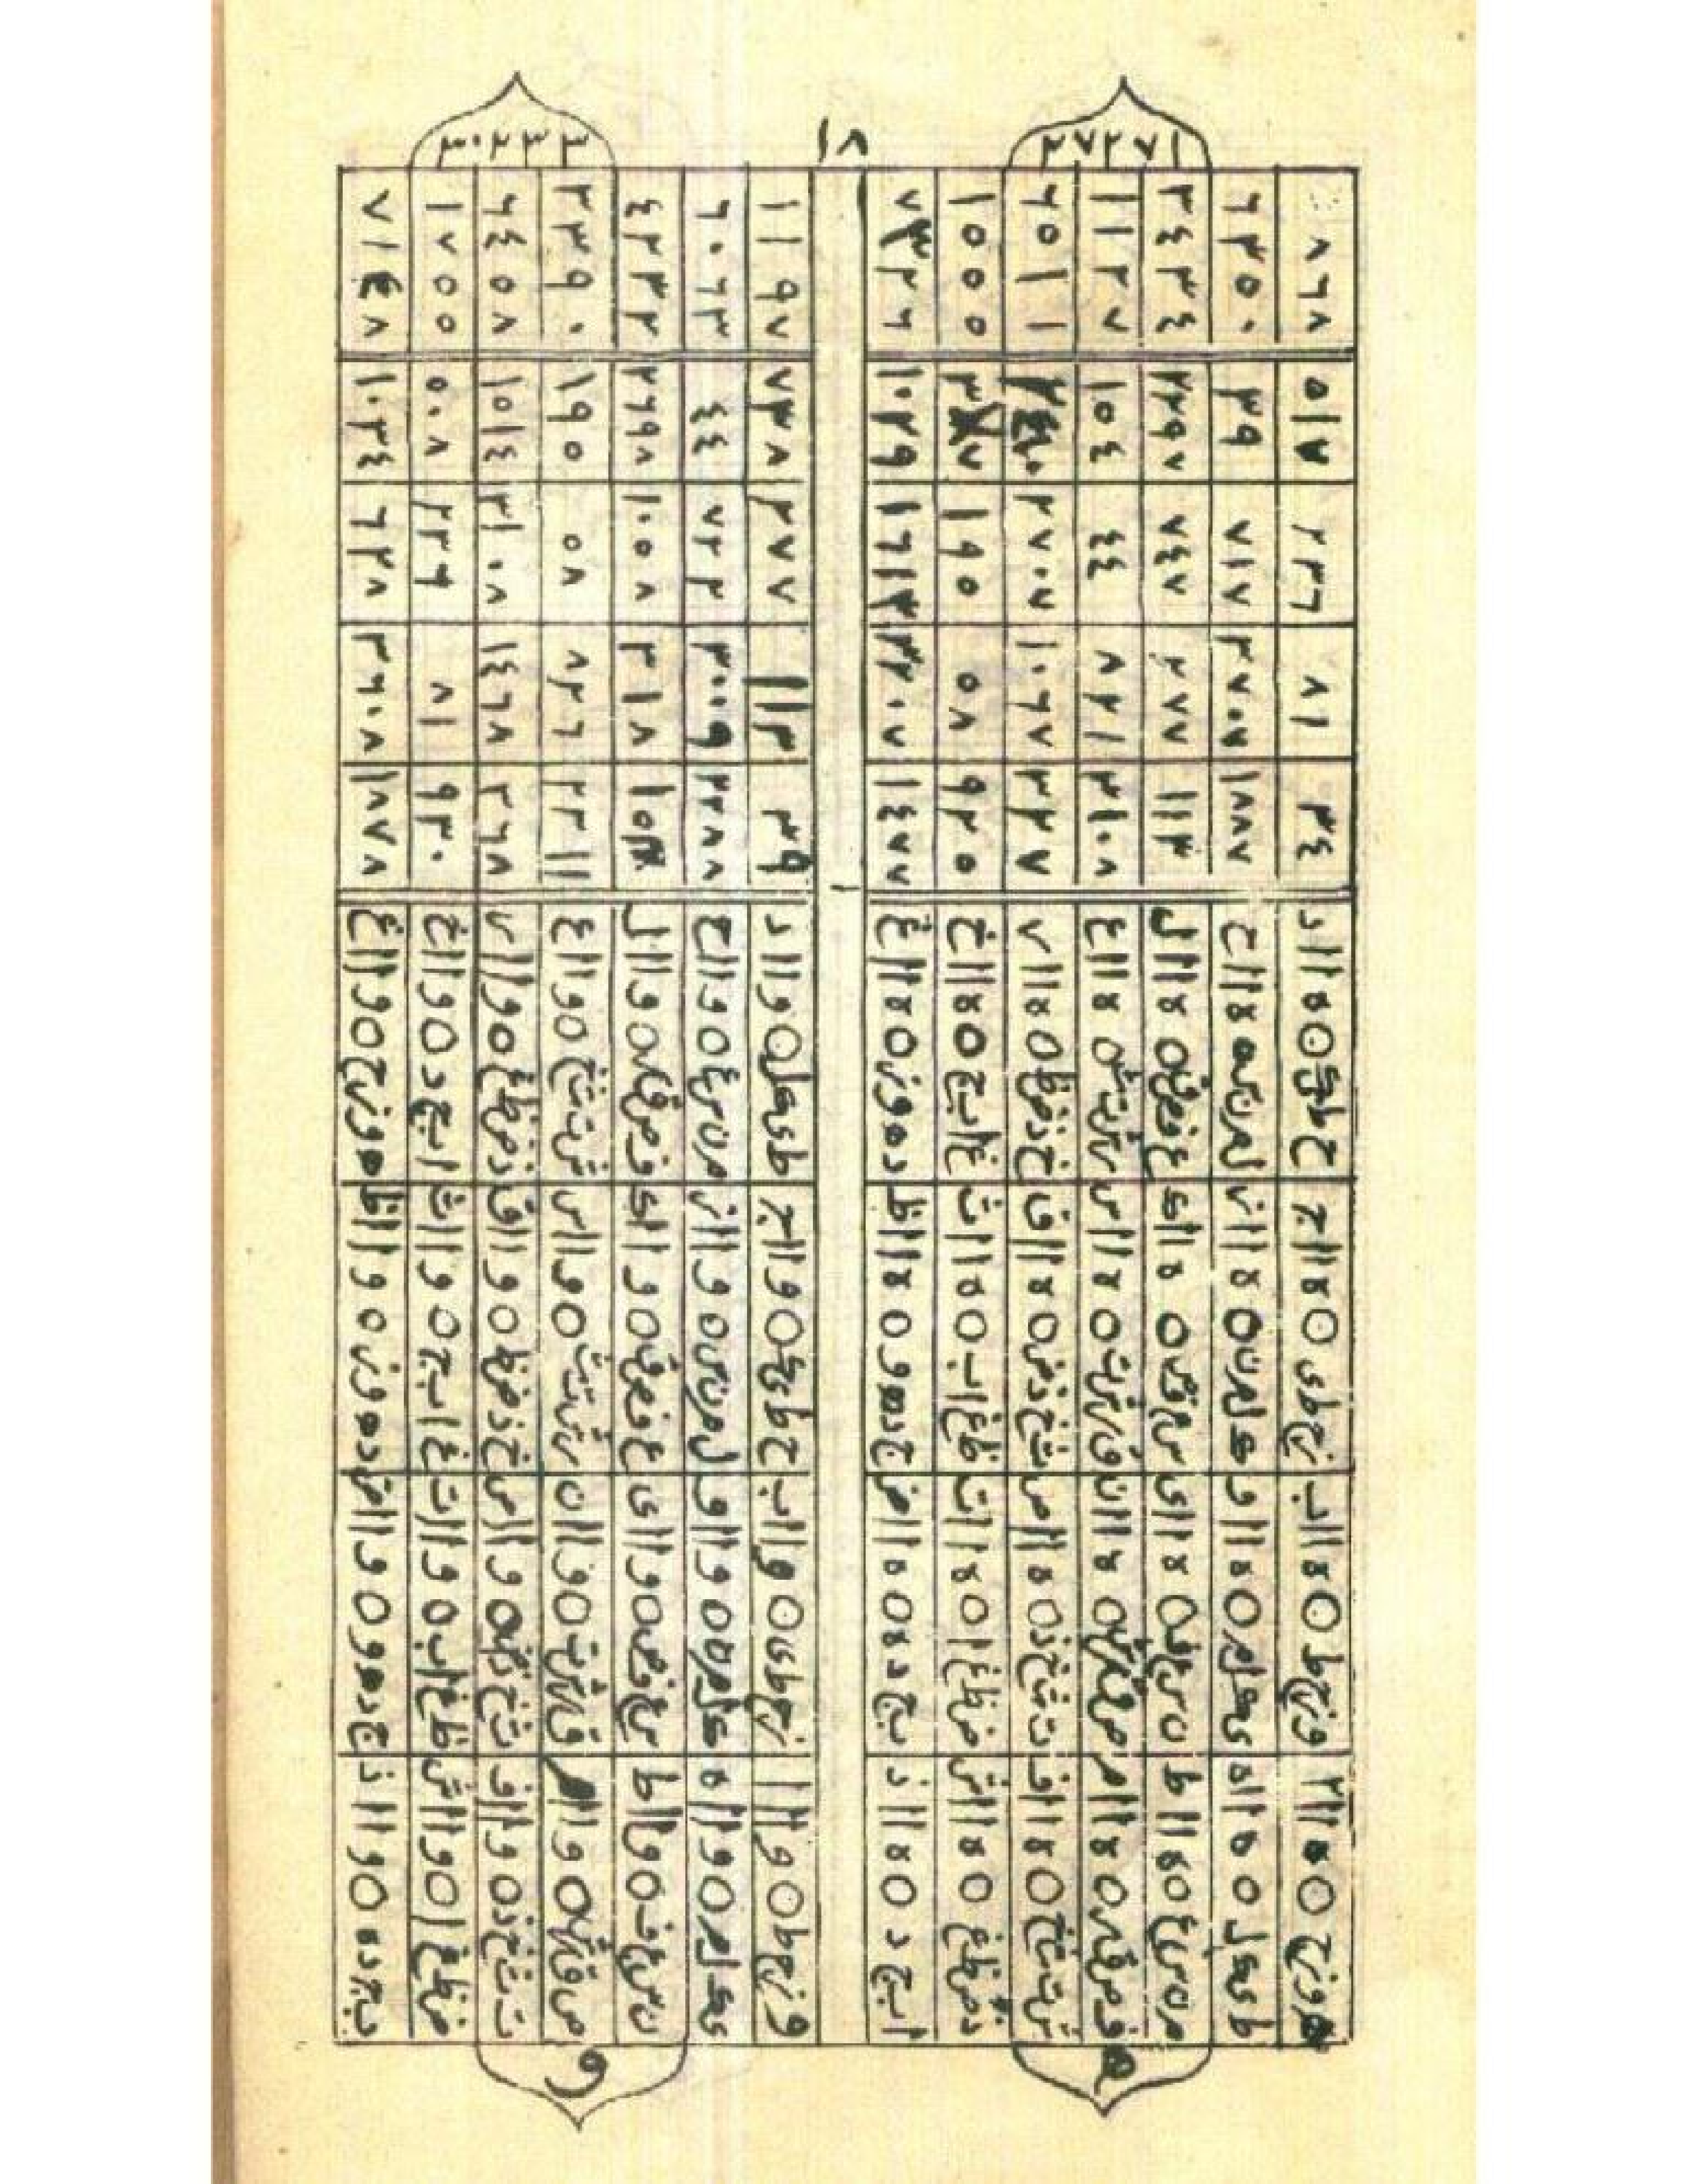 ١٧٢٧٢
ه و ز ح ٥ ه ااا ا و ز ح ط ٥ ه اا ب ز ح ط ي ٥ ه اا ج ح ط ي ك ٥ ه اا د ٣٤ ٨١ ٢٢٦ ٥١٧
ط ي ك ل ٥ ه اا ه ي ك ل م ٥ ه اا و ك ل م ن ٥ ه اا ز ل م ن س ٥ ه اا ح ١٨٨٧ ٢٧٠٧ ٧١٧ ٣٩ ٦٣٥٠
م ن س ع ٥ ه اا ط ن س ع ف ٥ ه اا ي س ع ف ص ٥ ه اا ك ع ف ص ق ٥ ه اا ل ١١٣ ٢٧٧ ٧٤٧ ٢٢٩٧ ٣٤٣٤
ف ص ق ر ٥ ه اا م ص ق ر ش ٥ ه اا ن ق ر ش ت ٥ ه اا س ر ش ت ث ٥ ه اا ع ٢١٠٨ ٨٢١ ٤٤ ١٥٤ ١١٢٧
ش ت ث خ ٥ ه اا ف ت ث خ ذ ٥ ه اا ص ث خ ذ ض ٥ ه اا ق خ ذ ض ظ ٥ ه اا ر ١٠٦٧ ٢٧٠٧
ذ ض ظ غ ٥ ه اا ش ض ظ غ ا ٥ ه اا ت ظ غ ا ب ٥ ه اا ث غ ا ب ج ٥ ه اا خ ٩٢٥ ٥٨ ١٩٥ ١٥٥٥
ا ب ج د ٥ ه اا ذ ب ج د ه ٥ ه اا ض ج د ه و ٥ ه اا ظ د ه و ز ٥ ه اا غ ١٤٧٧ ٢٢٠٧ ١٦١٣ ١٠٢٩ ٧٣٢٦
١٧
و ز ح ط ٥ و ااا ا ز ح ط ي ٥ و اا ب ح ط ي ك ٥ و اا ج ط ي ك ل ٥ و اا د ٣٩ ١١٣ ٢٧٧ ٧٣٨ ١١٩٧
ي ك ل م ٥ و اا ه ك ل م ن ٥ و اا و ل م ن س ٥ و اا ز م ن س ع ٥ و اا ح ٢٢٨٨ ٣٠٠٩ ٧٢٢ ٤٤ ٦٠٦٣
ن س ع ف ٥ و اا ط س ع ف ص ٥ و اا ي ع ف ص ق ٥ و اا ك ف ص ق ر ٥ و اا ل ٢١٨ ١٠٠٨ ٢٦٩٨ ٤٣٢٢
ص ق ر ش ٥ و اا م ق ر ش ت ٥ و اا ن ر ش ت ث ٥ و اا س ش ت ث خ ٥ و اا ع ٢٣١١ ٨٢٦ ٥٨ ١٩٥ ٣٣٩٠
ت ث خ ذ ٥ و اا ف ث خ ذ ض ٥ و اا ص خ ذ ض ظ ٥ و اا ق ذ ض ظ غ ٥ و اا ر ٢٦٨ ١٤٦٨ ٢١٠٨ ١٥١٤ ٦٤٥٨
ض ظ غ ا ٥ و اا ش ظ غ ا ب ٥ و اا ت غ ا ب ج ٥ و اا ث ا ب ج د ٥ و اا خ ٩٣٠ ٨١ ٢٣٦ ٥٠٨ ١٧٥٥
ب ج د ه ٥ و اا ذ ج د ه و ٥ و اا ض د ه و ز ٥ و اا ظ ه و ز ح ٥ و اا غ ١٨٧٨ ٢٦٠٨ ٦٢٨ ١٠٣٤ ٧١٤٨